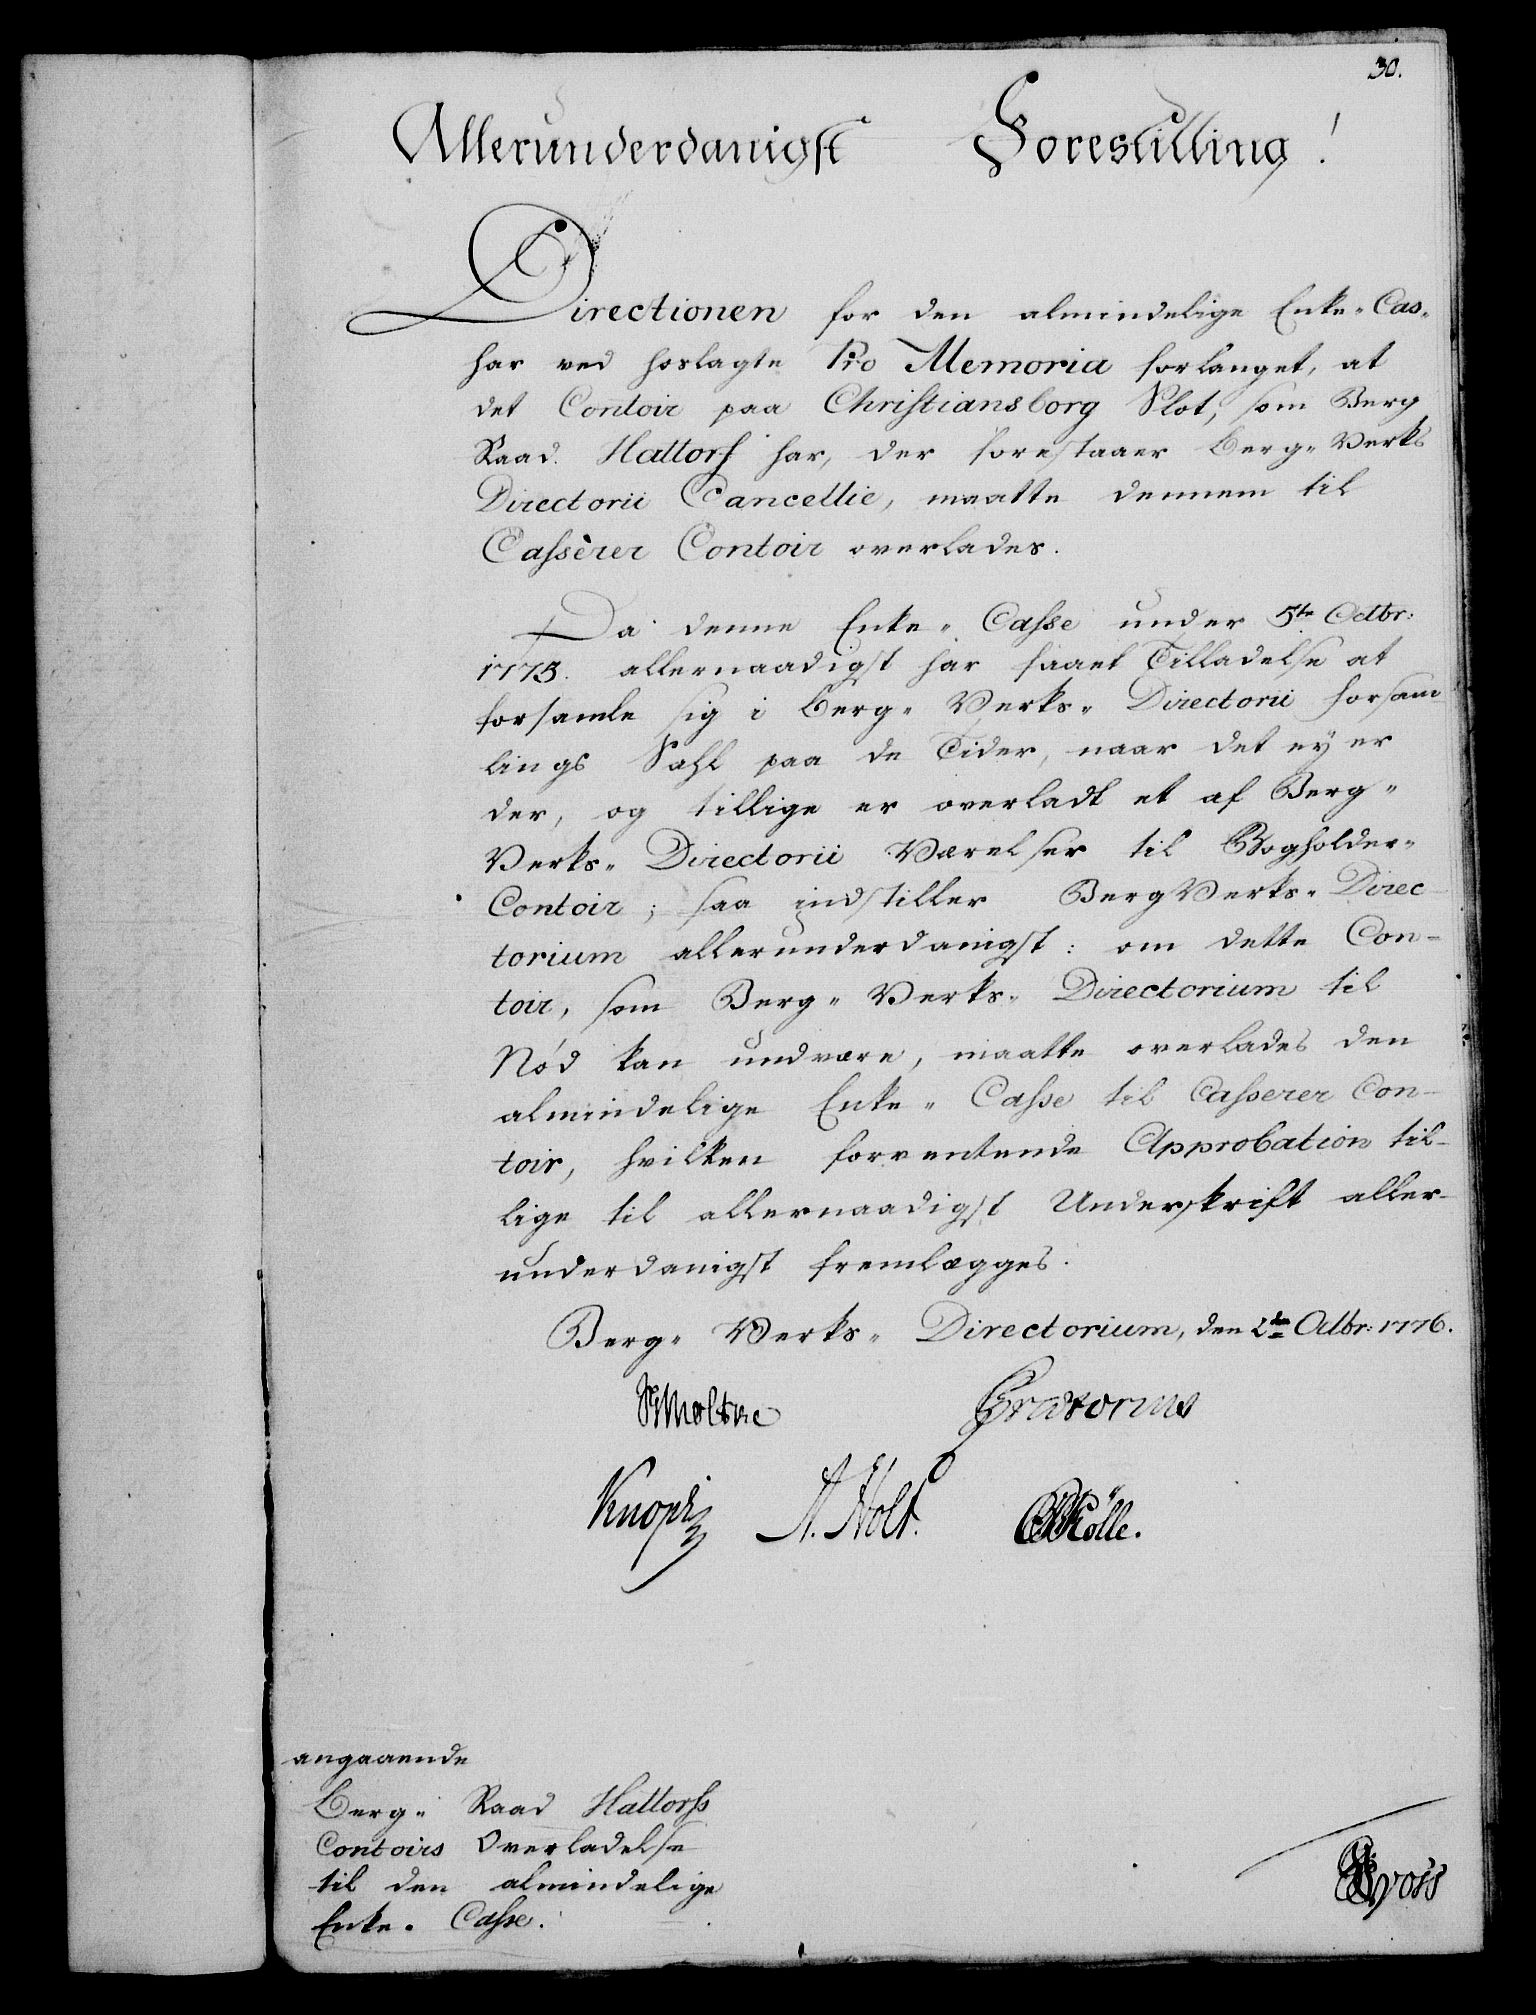 30.
Allerunderdanigst Forestilling!
Directionen for den almindelige Enke-Cas-
har ved hoslagte Pro Memoria forlanget, at
det Contoir paa Christiansborg Slot, som Berg
Raad Hattorf har, der forestaaer Berg-Verks
Directorii Cancellie, maatte dennem til
Casserer Contoir overlades.
Da denne Enke-Casse under 5te Octbr:
1775. allernaadigst har faaet Tilladelse at
forsamle sig i Berg-Verks-Directorii Forsam
lings Sahl paa de Tider, naar det ey er
der, og tillige er overladt et af Berg-
Verks-Directorii Værelser til Bogholder-
Contoir; saa indstiller BergVerks-Direc-
torium allerunderdanigst: om dette Con-
toir, som Berg-Verks-Directorium til
Nød kan undvære, maatte overlades den
almindelige Enke-Casse til Casserer Con-
toir, hvilken forventende Approbation til-
lige til allernaadigst Underskrift aller-
underdanigst fremlægges.
Berg-Verks-Directorium, den 2den Octbr: 1776.
Moltke Prætorius
Knoph A. Holt. Kölle.
angaaende
Berg-Raad Hattorfs
Contoirs Overladelse
til den almindelige
Enke-Casse.